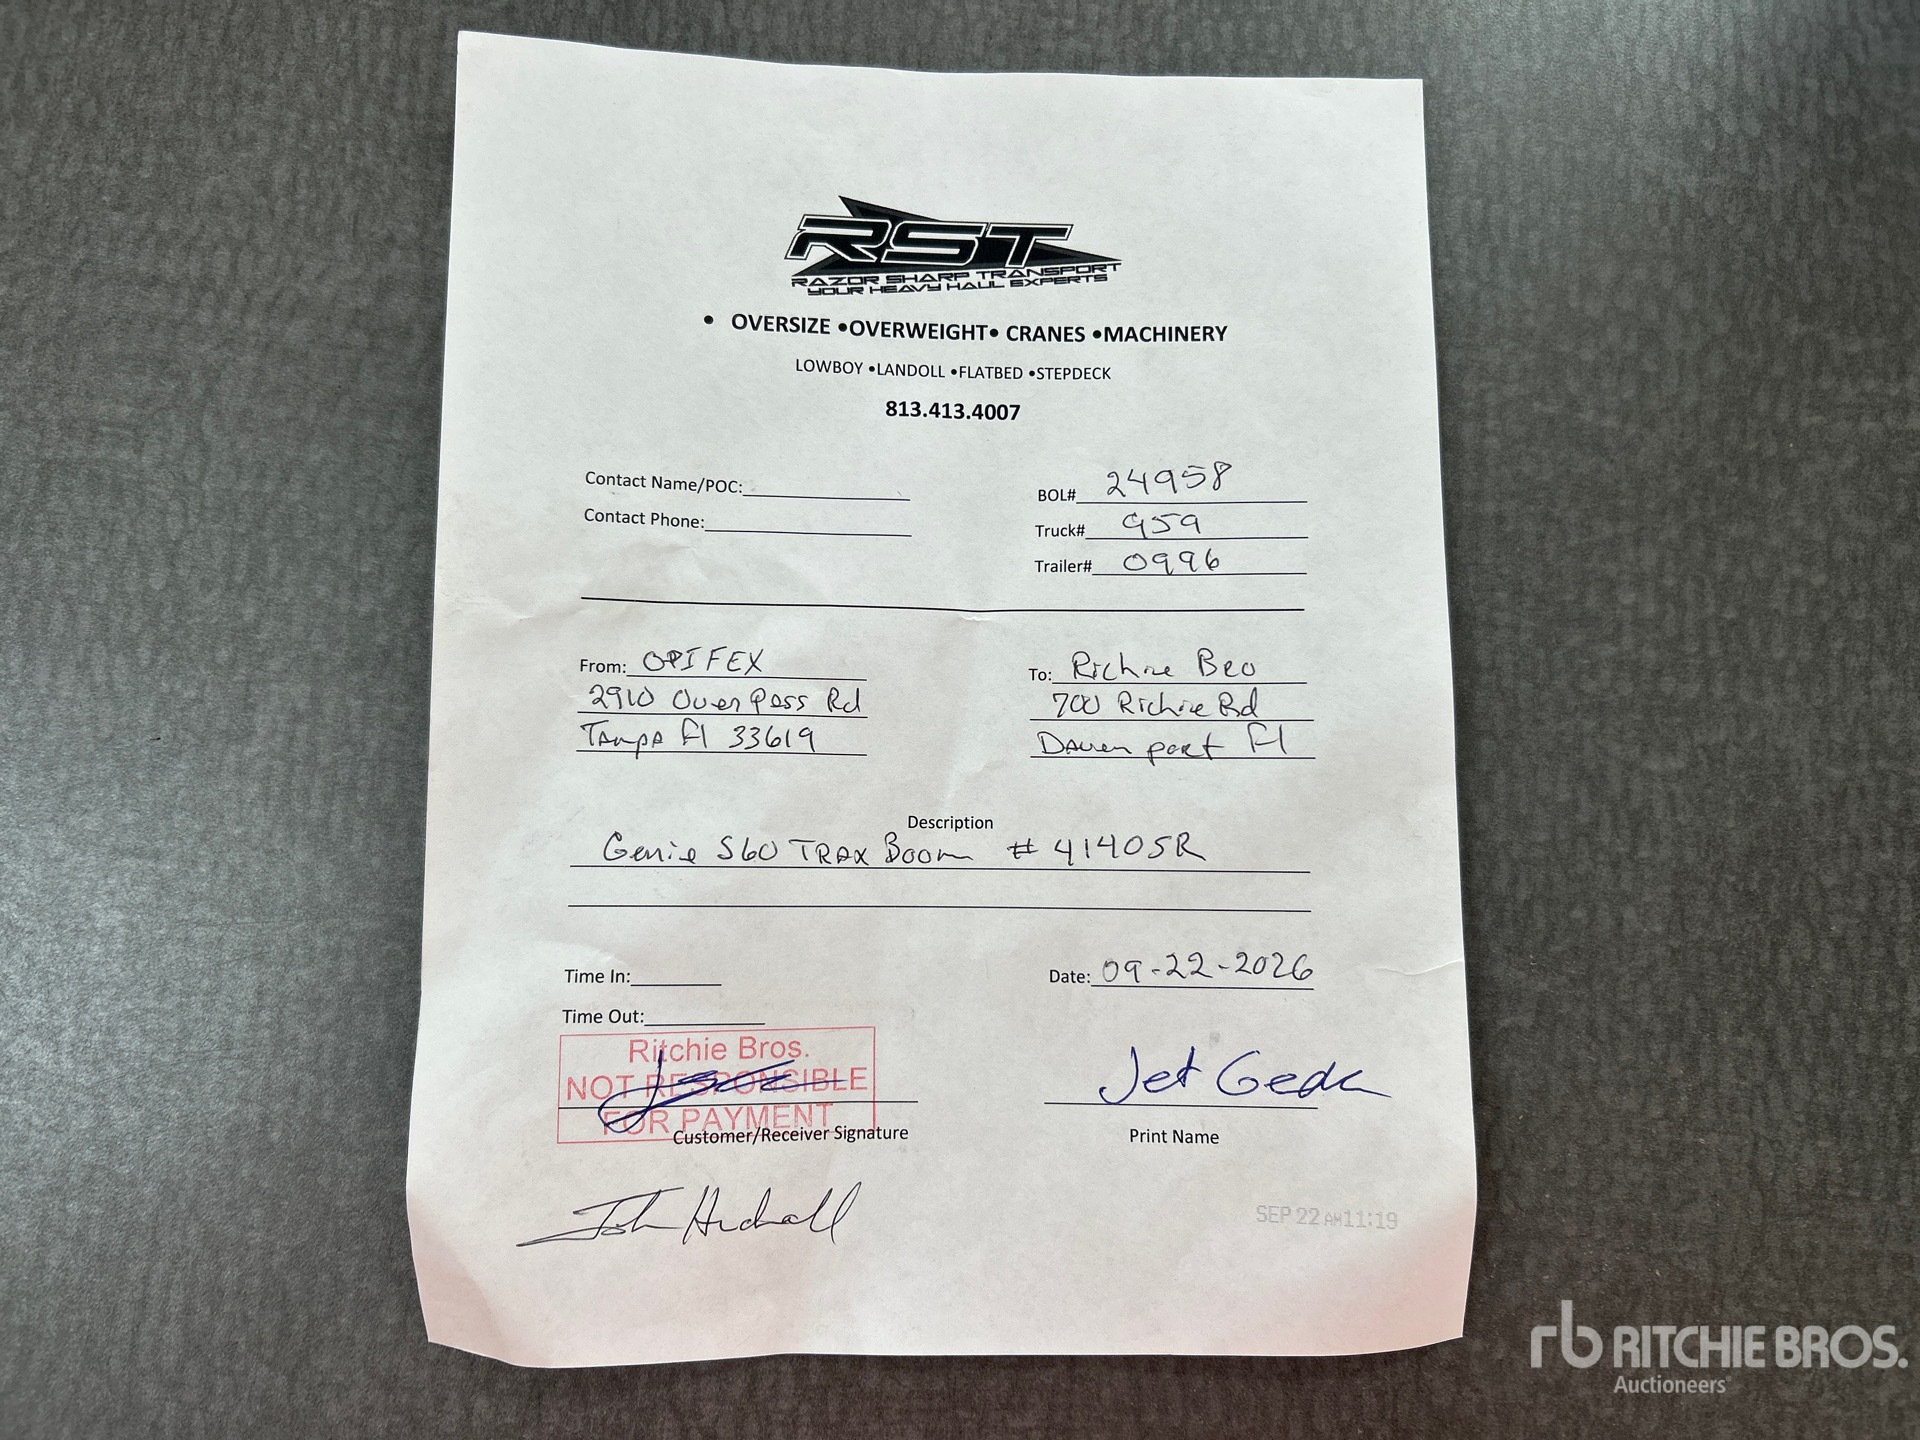 RST
RAZOR SHARP TRANSPORT
YOUR HEAVY HAUL EXPERTS
• OVERSIZE •OVERWEIGHT• CRANES •MACHINERY
LOWBOY •LANDOLL •FLATBED •STEPDECK
813.413.4007
Contact Name/POC:
Contact Phone:
BOL# 24958
Truck# 959
Trailer# 0996
From: OPIFEX
2910 OverPass Rd
Tampa Fl 33619
To: Richie Bro
700 Richie Rd
Davenport Fl
Description
Genie S60 TRAX Boom # 41405R
Time In:
Date: 09-22-2026
Time Out:
Ritchie Bros.
NOT RESPONSIBLE
FOR PAYMENT
Customer/Receiver Signature
Jet
Print Name
John
SEP 22 AM 11:19
rb RITCHIE BROS.
Auctioneers